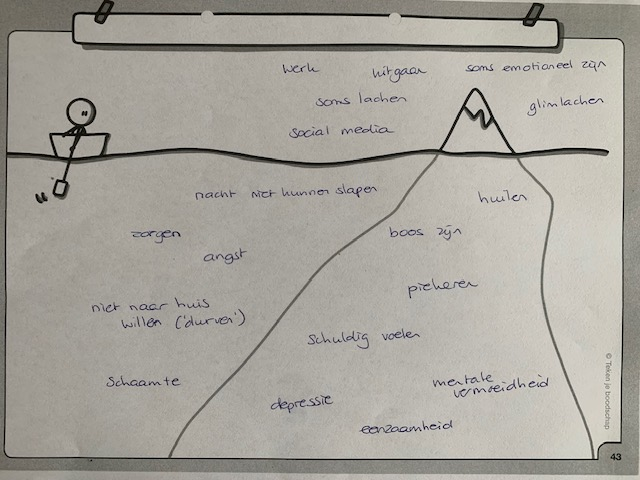 werk uitgaan soms emotioneel zijn
soms lachen glimlachen
social media
nacht niet kunnen slapen huilen
zorgen boos zijn
angst
piekeren
niet naar huis
willen ('durven')
schuldig voelen
schaamte
mentale
vermoeidheid
depressie
eenzaamheid
© Teken je boodschap
43